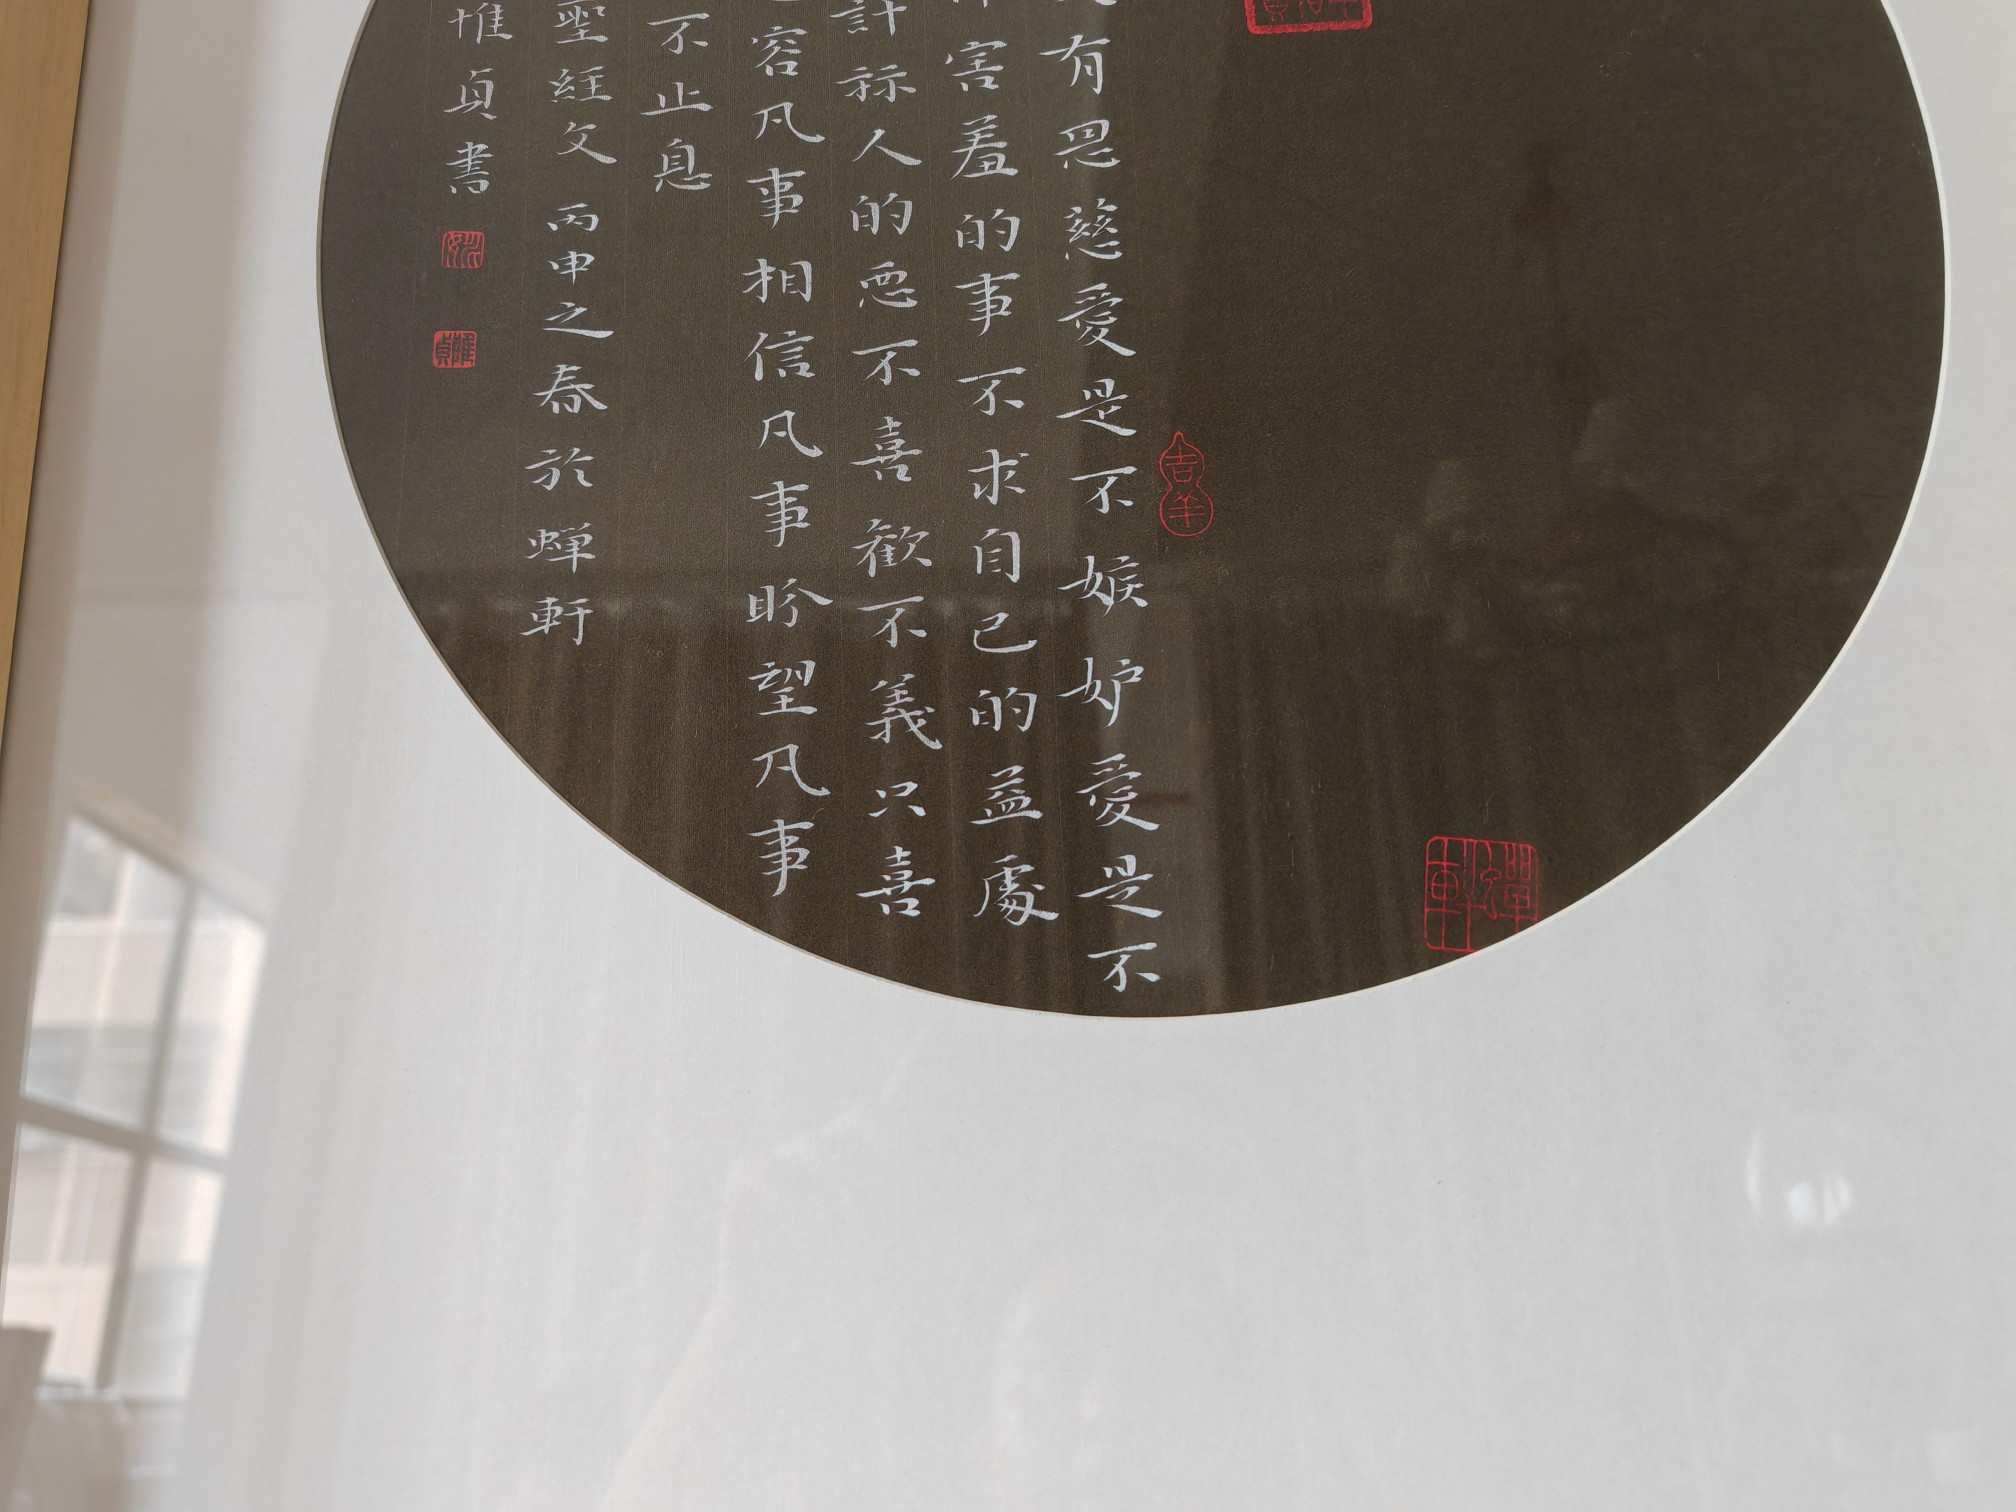 有恩慈愛是不嫉妒愛是不
害羞的事不求自己的益處
計祘人的惡不喜歡不義只喜
容凡事相信凡事盼望凡事
不止息
聖經文 丙申之春於蟬軒
惟貞書
吉羊
蟬軒
惟貞